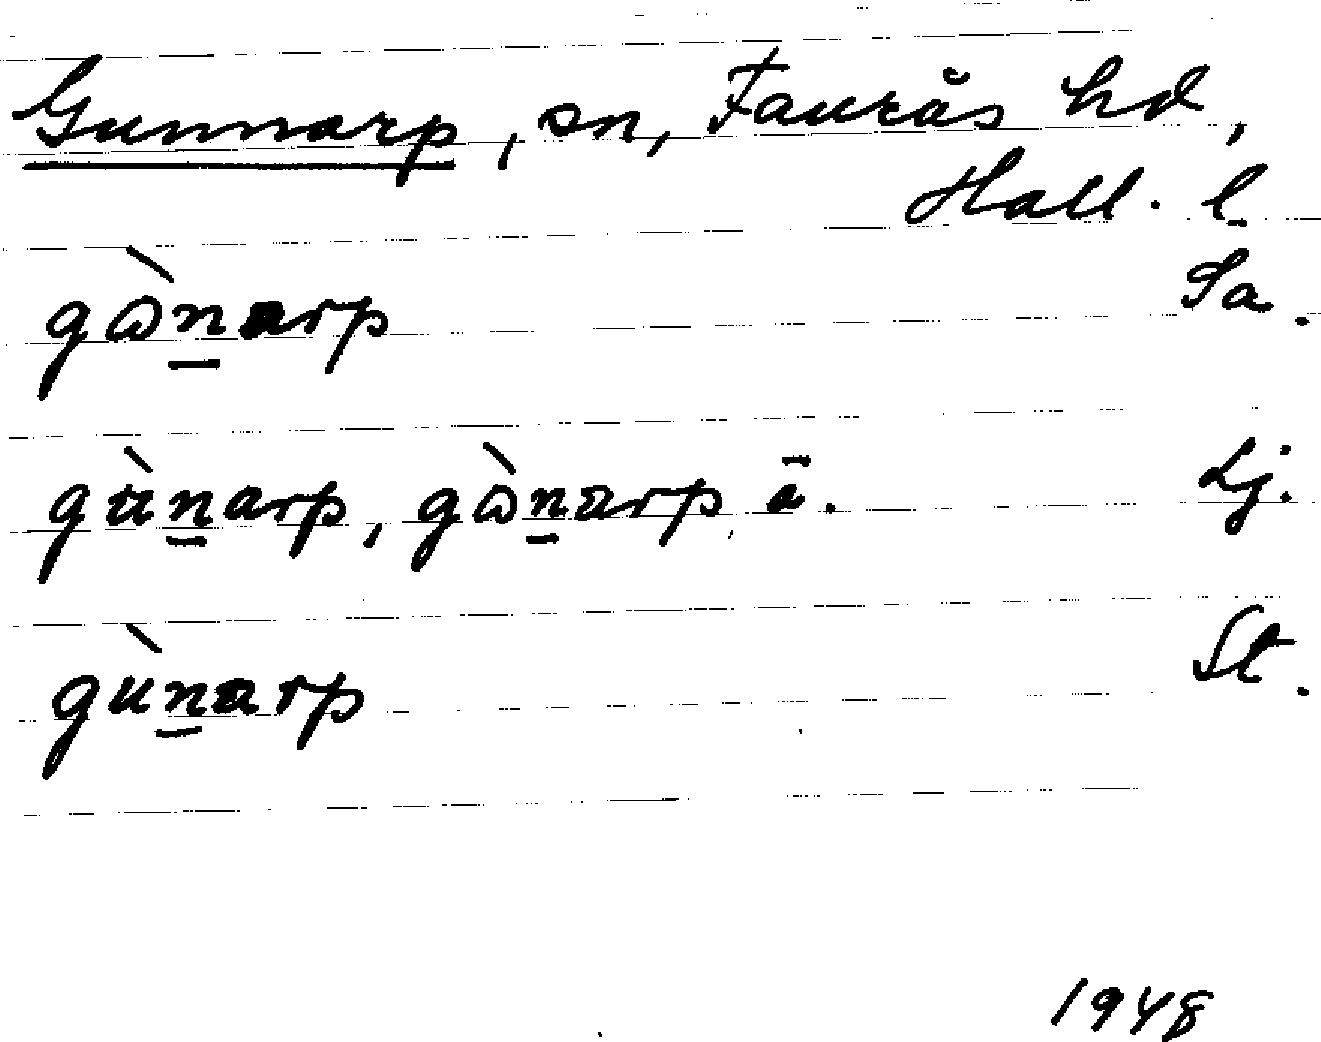 Gunnarp, sn, Faurås hd,
Hall. l.
gɷ̀n̲arp Sa.
gùn̲arp, gɷ̀n̲arp ä. Lj.
gùn̲arp St.
1948